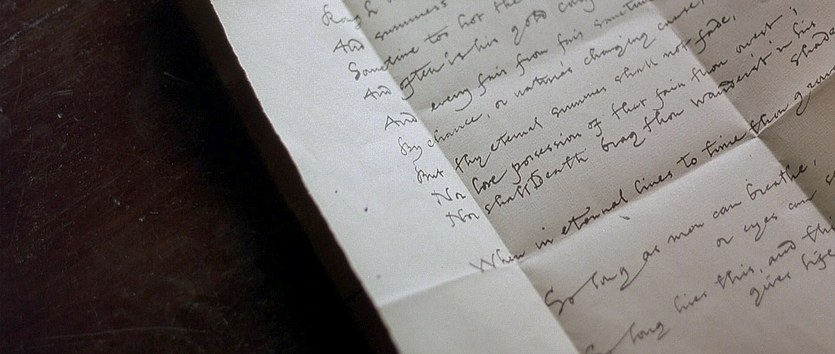 Rough
And summers
Sometime too hot the
And often is his gold
And every fair from fair sometime
By chance, or nature's changing course,
But thy eternal summer shall not fade,
Nor lose possession of that fair thou owest;
Nor shall Death brag thou wander'st in his
shade
When in eternal lines to time thou grow
So long as men can breathe,
or eyes can
So long lives this, and th
gives life